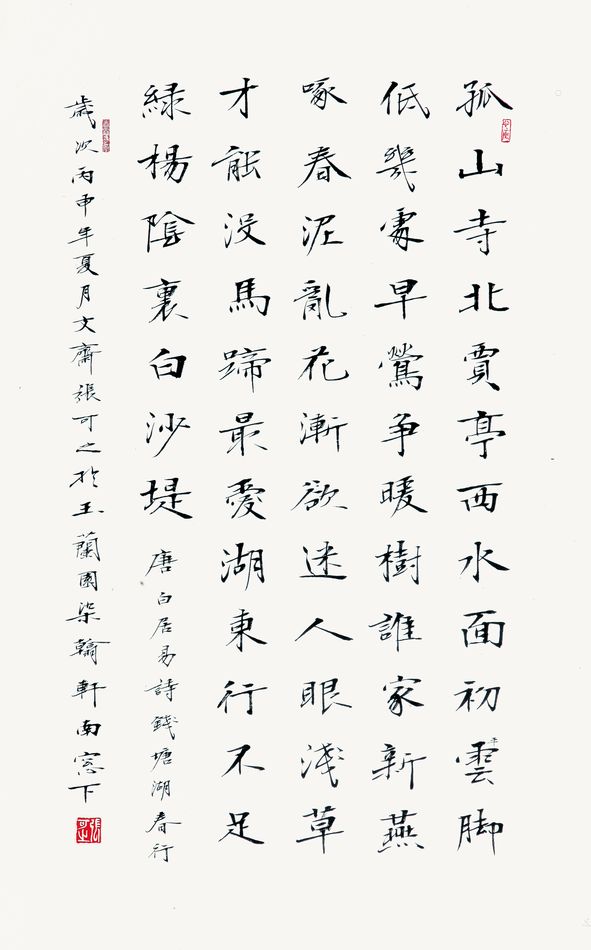 孤山寺北賈亭西水面初平雲脚
低幾處早鶯争暖樹誰家新燕
啄春泥亂花漸欲迷人眼淺草
才能没馬蹄最愛湖東行不足
緑楊陰裏白沙堤 唐白居易詩錢塘湖春行
歲次丙申年夏月文齋張可之於玉蘭園染翰軒南窓下
張可之